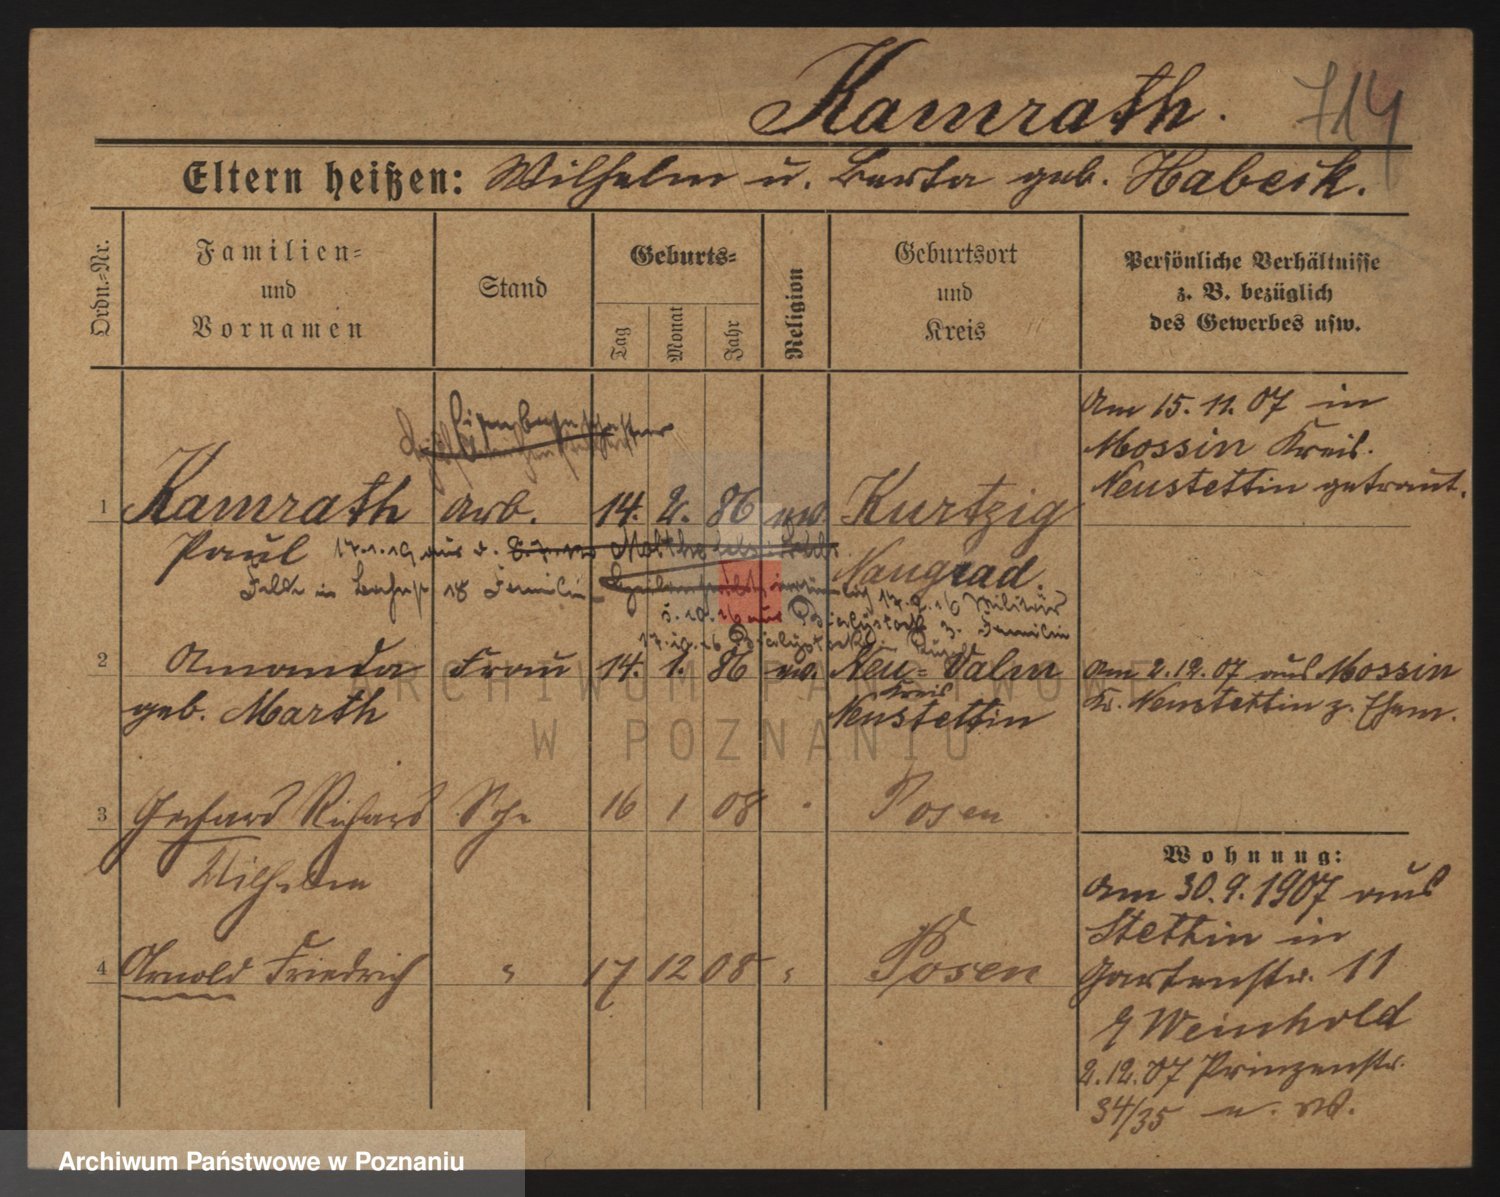 Kamrath. 714
Eltern heißen: Wilhelm u. Berta geb. Habeck.
Ordn.-Nr.
Familien-
und
Vornamen
Stand
Geburts-
Tag
Monat
Jahr
Religion
Geburtsort
und
Kreis
Persönliche Verhältnisse
z. B. bezüglich
des Gewerbes usw.
Am 15. 11. 07 in
Mossin Kreis.
Neustettin getraut.
1 Kamrath Arb. 14. 2. 86 ev. Kurtzig
Paul 17.1.19 aus d.
Naugard.
Felde in 18 Familie
17.9.16 Militär
5.10.16 aus Bialystock z. Familie
17.10.16 Bialystock
2 Amanda Frau 14. 1. 86 ev. Neu-Valm
geb. Marth
Kreis
Neustettin
Am 2.12.07 aus Mossin
Kr. Neustettin z. Ehem.
3 Gerhard Richard 16 1 08 Posen
Wilhelm
4 Arnold Friedrich " 17 12 08 " Posen
Wohnung:
Am 30.9.1907 aus
Stettin in
Gartenstr. 11
Weinhold
2.12.07 Prinzenstr.
34/35
ARCHIWUM PAŃSTWOWE
W POZNANIU
Archiwum Państwowe w Poznaniu